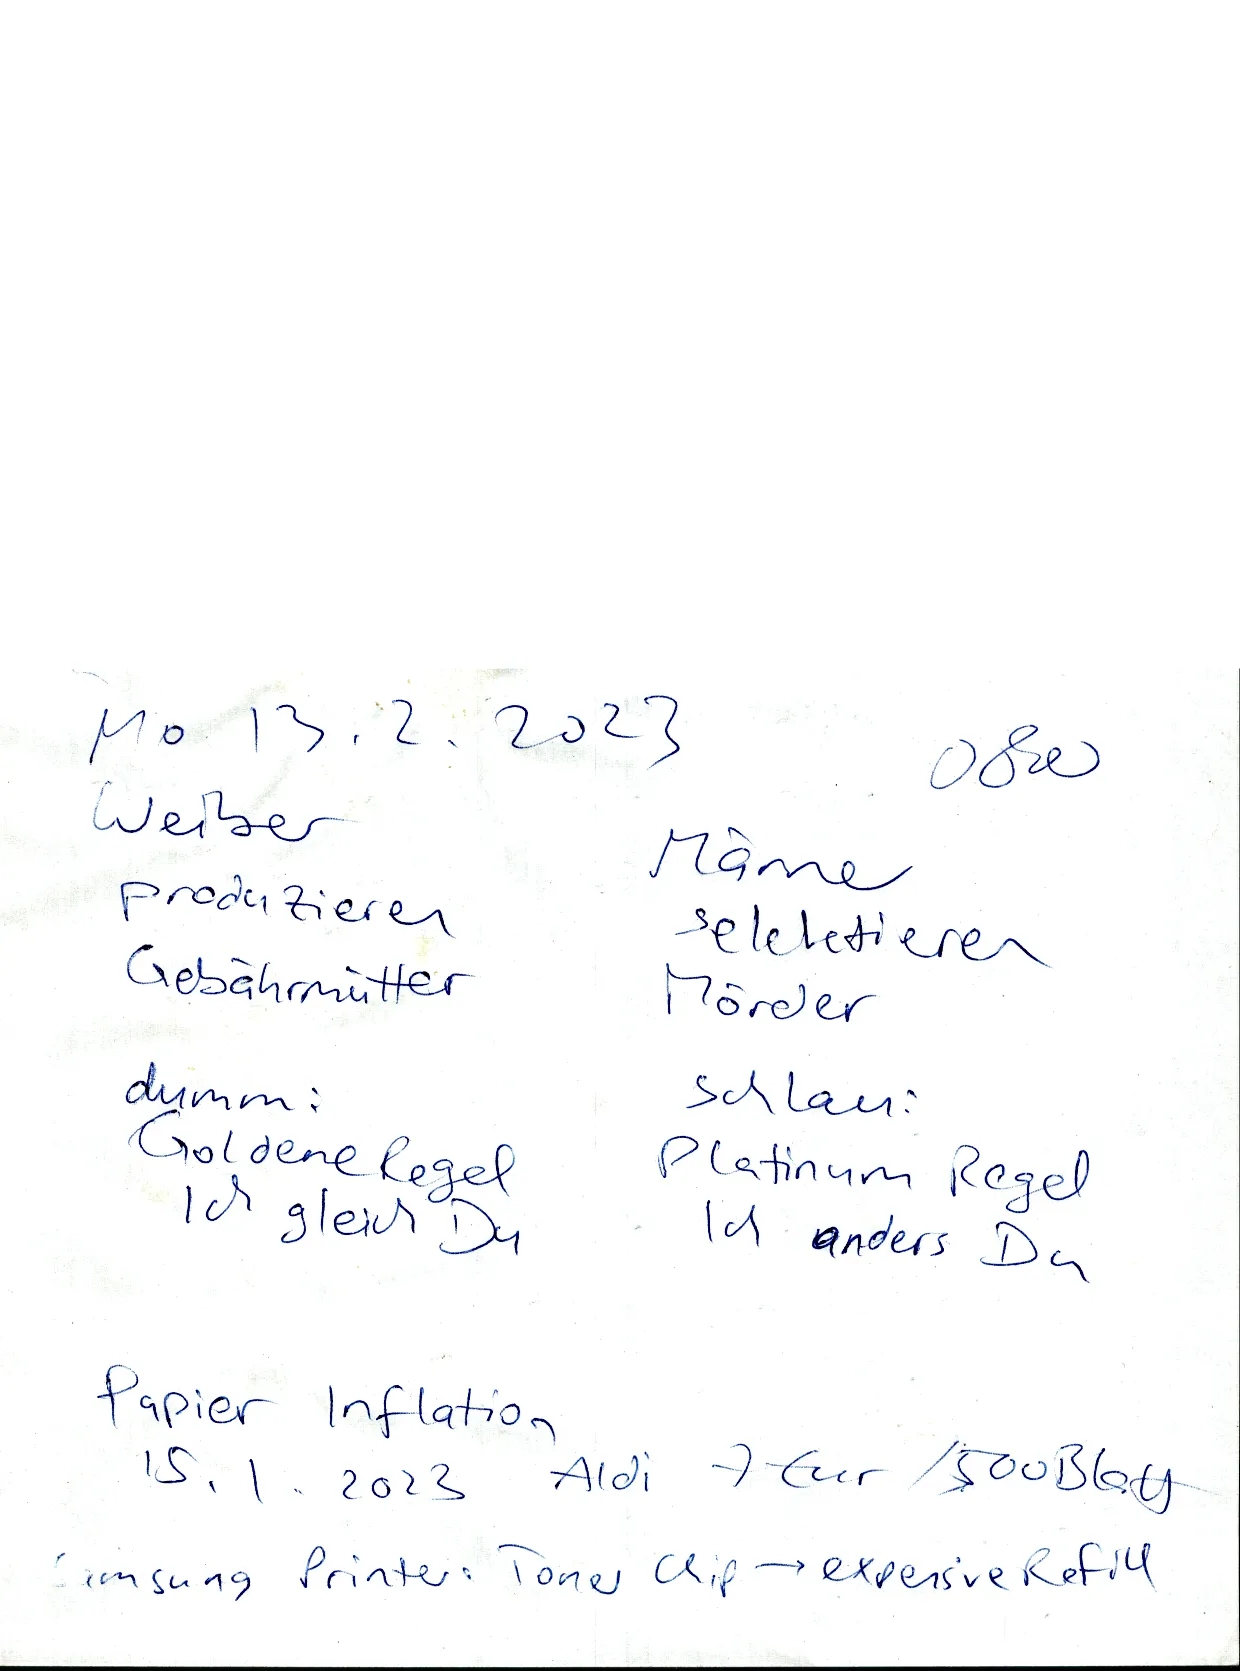 Mo 13.2.2023
Weiber
produzieren
Gebährmütter
dumm:
Goldene Regel
Ich gleich Du
Mäner
selektieren
Mörder
schlau:
Platinum Regel
Ich anders Du
Papier Inflation
15.1.2023 Aldi 7 Eur /500 Blatt
Samsung Printer: Toner Chip → expensive Refill